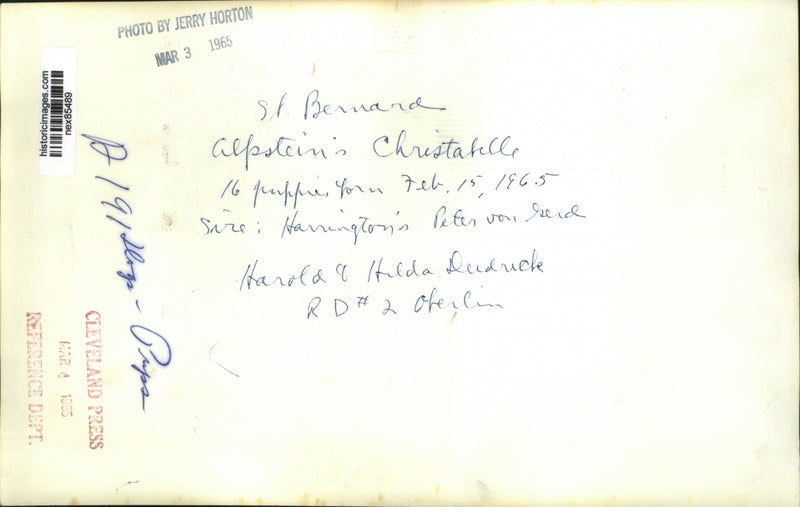 PHOTO BY JERRY HORTON
MAR 3 1965
historicimages.com
nex85489
St. Bernard
Alpstein's Christabelle
16 puppies born Feb. 15, 1965
Sire: Harrington's Peter von Gerd
Harold & Hilda Deidrick
R D # 2 Oberlin
Dogs - Pups
CLEVELAND PRESS
MAR 4 1965
REFERENCE DEPT.